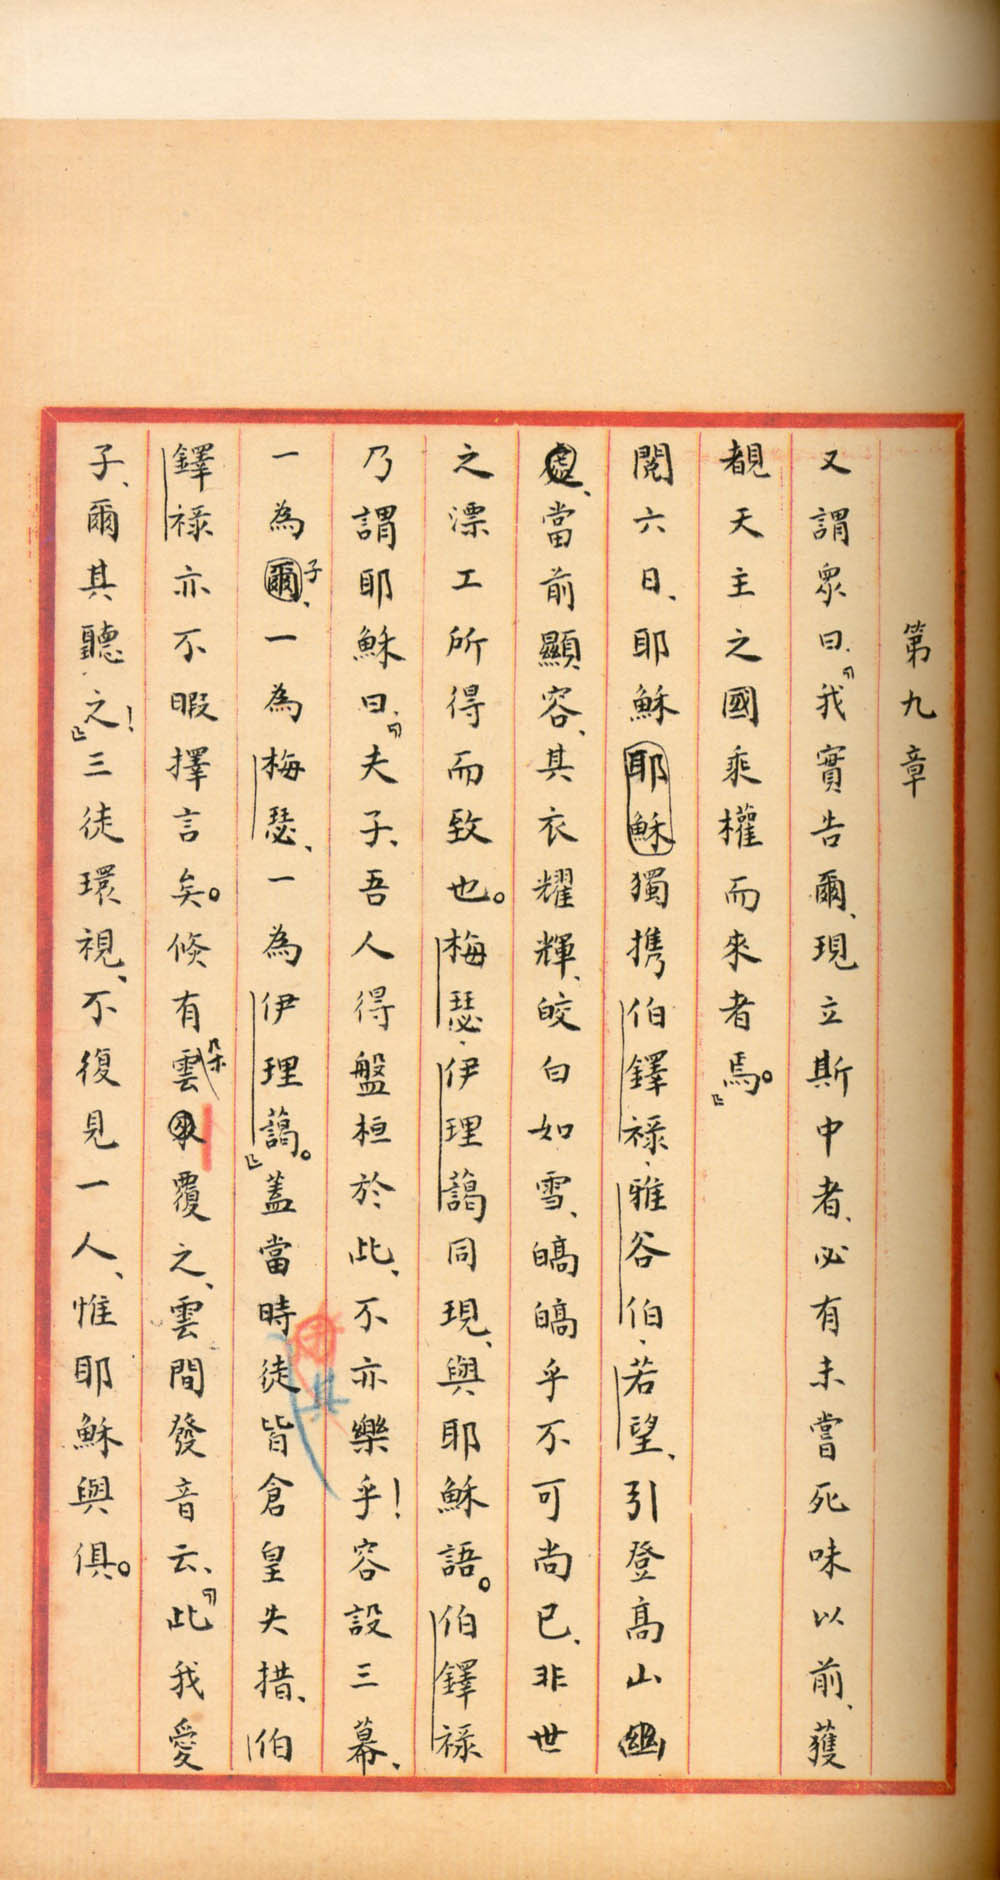 第九章
又謂眾曰、「我實告爾、現立斯中者、必有未嘗死味以前、獲
覩天主之國乘權而來者焉。」
閱六日、耶穌耶穌獨携伯鐸祿、雅谷伯、若望、引登高山幽
處、當前顯容、其衣耀輝、皎白如雪、皜皜乎不可尚已、非世
之漂工所得而致也。梅瑟、伊理藹同現、與耶穌語。伯鐸祿
乃謂耶穌曰、「夫子、吾人得盤桓於此、不亦樂乎！容設三幕、
一為爾子、一為梅瑟、一為伊理藹。」蓋當時其徒皆倉皇失措、伯
鐸祿亦不暇擇言矣。倏有雲朵覆之、雲間發音云、「此我愛
子、爾其聽之！」三徒環視、不復見一人、惟耶穌與俱。